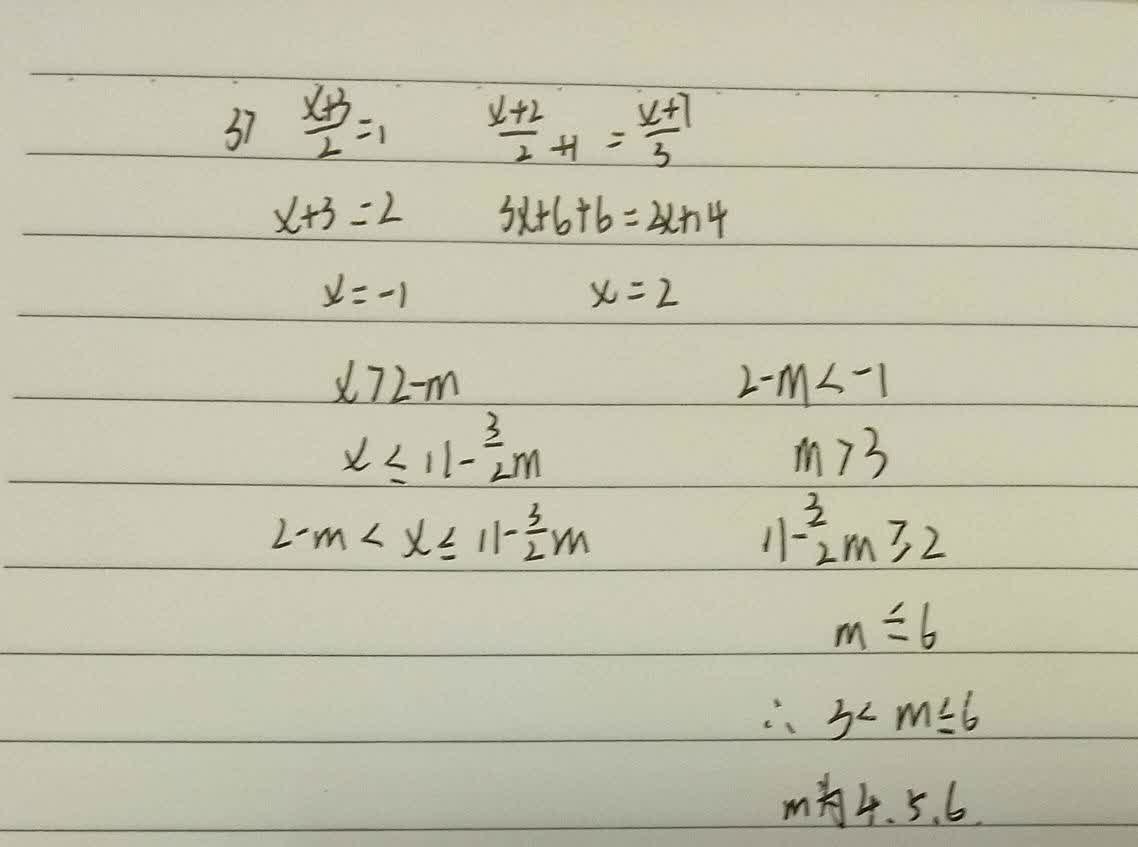 3) x+3/2=1 x+2/2+1=x+7/3
x+3=2 3x+6+6=2x+14
x=-1 x=2
x>2-m 2-m<-1
x≤11-3/2m m>3
2-m<x≤11-3/2m 11-3/2m≥2
m≤6
∴ 3<m≤6
m为4.5.6.